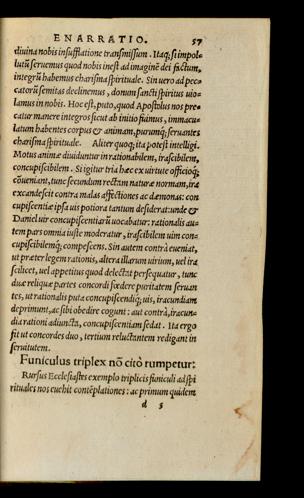 ENARRATIO. 57
diuina nobis insufflatione transmissum. Itaq; si impol-
lutũ seruemus quod nobis inest ad imaginẽ dei factum,
integrũ habemus charisma spirituale. Sin uero ad pec-
catorũ semitas declinemus, donum sancti spiritus uio-
lamus in nobis. Hoc est, puto, quod Apostolus nos pre-
catur manere integros sicut ab initio fuimus, immacu-
latum habentes corpus & animam, purumq; seruantes
charisma spirituale. Aliter quoq; ita potest intelligi.
Motus animæ diuiduntur in rationabilem, irascibilem,
concupiscibilem. Si igitur tria hæc ex uirtute officioq;
cõueniant, tunc secundum rectam naturæ normam, ira
excandescit contra malas affectiones ac dæmonas: con
cupiscentiæ ipsa uis potiora tantum desiderat: unde &
Daniel uir concupiscentiarũ uocabatur: rationalis au-
tem pars omnia iuste moderatur, irascibilem uim con-
cupiscibilemq; compescens. Sin autem contrà eueniat,
ut præter legem rationis, altera illarum uirium, uel ira
scilicet, uel appetitus quod delectat persequatur, tunc
duæ reliquæ partes concordi fœdere puritatem seruan
tes, ut rationalis puta concupiscendiq; uis, iracundiam
deprimunt, ac sibi obedire cogunt: aut contrà, iracun-
dia rationi adiuncta, concupiscentiam sedat. Ita ergo
fit ut concordes duo, tertium reluctantem redigant in
seruitutem.
Funiculus triplex nõ citò rumpetur:
Rursus Ecclesiastes exemplo triplicis funiculi ad spi
rituales nos euehit contẽplationes: ac primum quidem
d 5